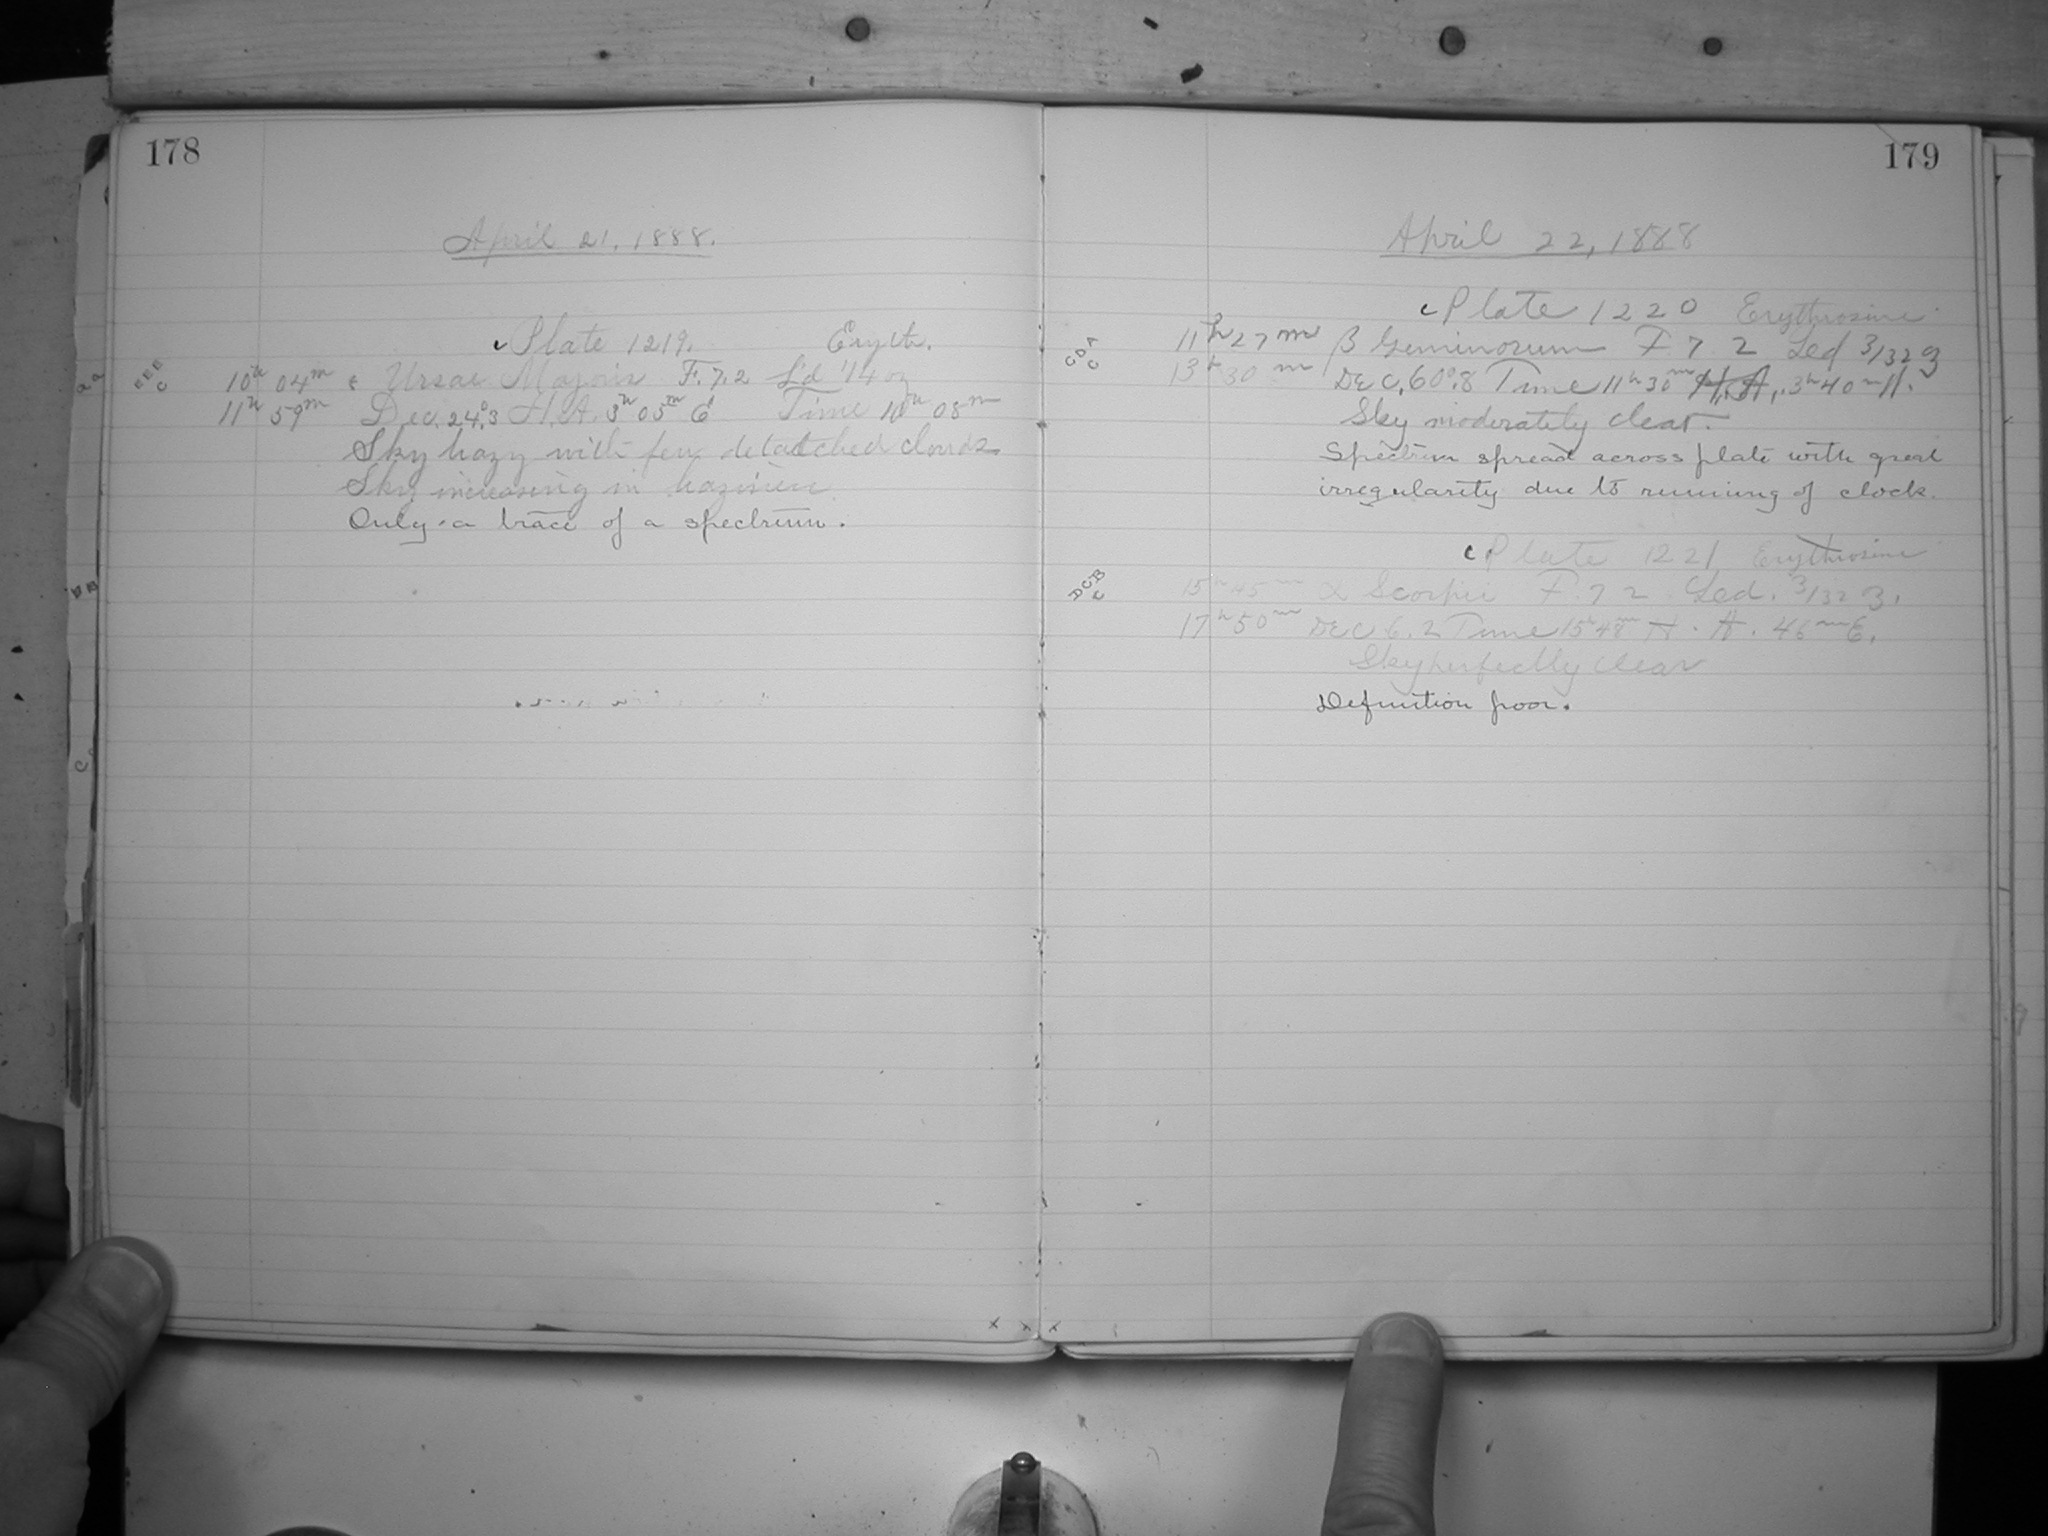 178
April 21, 1888.
Plate 1219. Eryth.
EEB
C
10h 04m ε Ursae Majoris F. 7.2 L'd 14 oz
11h 59m Dec. 24°.3 H.A. 3h 05m E Time 10h 08m
Sky hazy with few detatched clouds
Sky increasing in haziness
Only a trace of a spectrum.
179
April 22, 1888
Plate 1220 Erythrosine
CDA
C
11h 27m β Geminorum F 7 2 Led 3/32 3
13h 30m Dec. 60°.8 Time 11h 30m H. A. 3h 40m W.
Sky moderately clear.
Spectrum spread across plate with great
irregularity due to running of clock.
Plate 1221 Erythrosine
ACB
C
15h 45m α Scorpii F. 7 2 Led. 3/32 3.
17h 50m Dec 6.2 Time 15h 48m H. A. 46m E.
Sky perfectly clear
Definition poor.